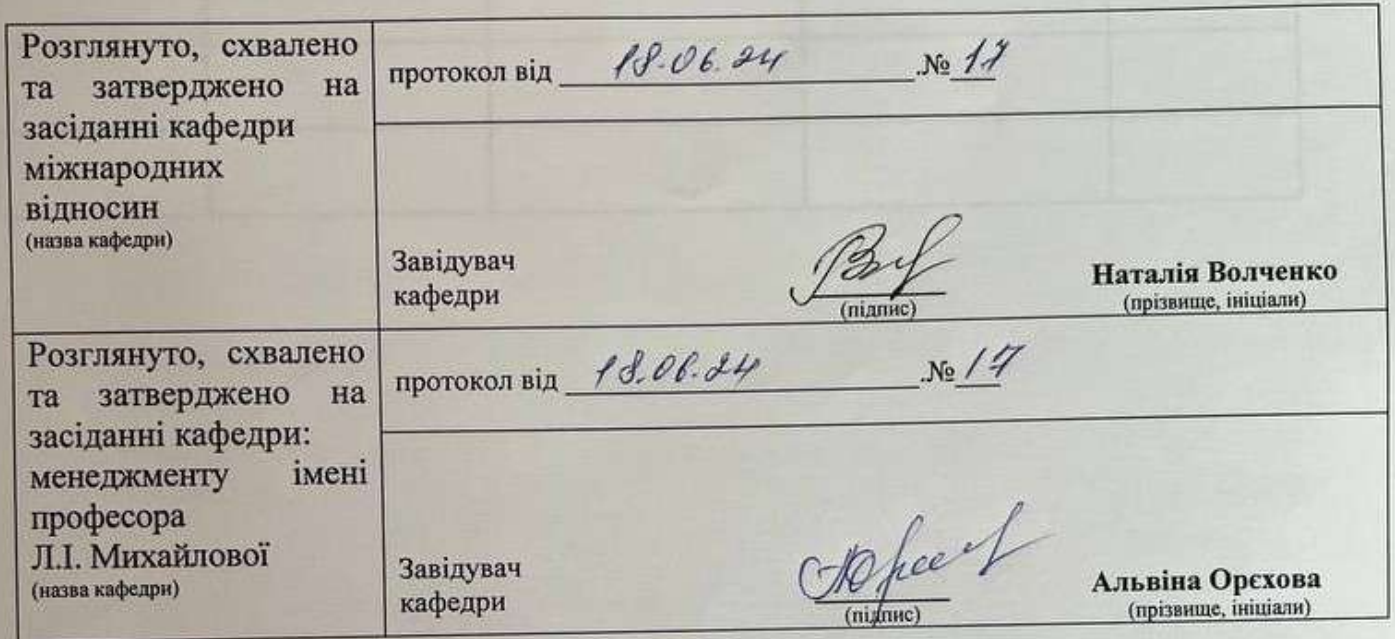 Розглянуто, схвалено
та затверджено на
засіданні кафедри
міжнародних
відносин
(назва кафедри)
протокол від 18.06.24 .№ 17
Завідувач
кафедри
(підпис)
Наталія Волченко
(прізвище, ініціали)
Розглянуто, схвалено
та затверджено на
засіданні кафедри:
менеджменту імені
професора
Л.І. Михайлової
(назва кафедри)
протокол від 18.06.24 .№ 17
Завідувач
кафедри
(підпис)
Альвіна Орєхова
(прізвище, ініціали)